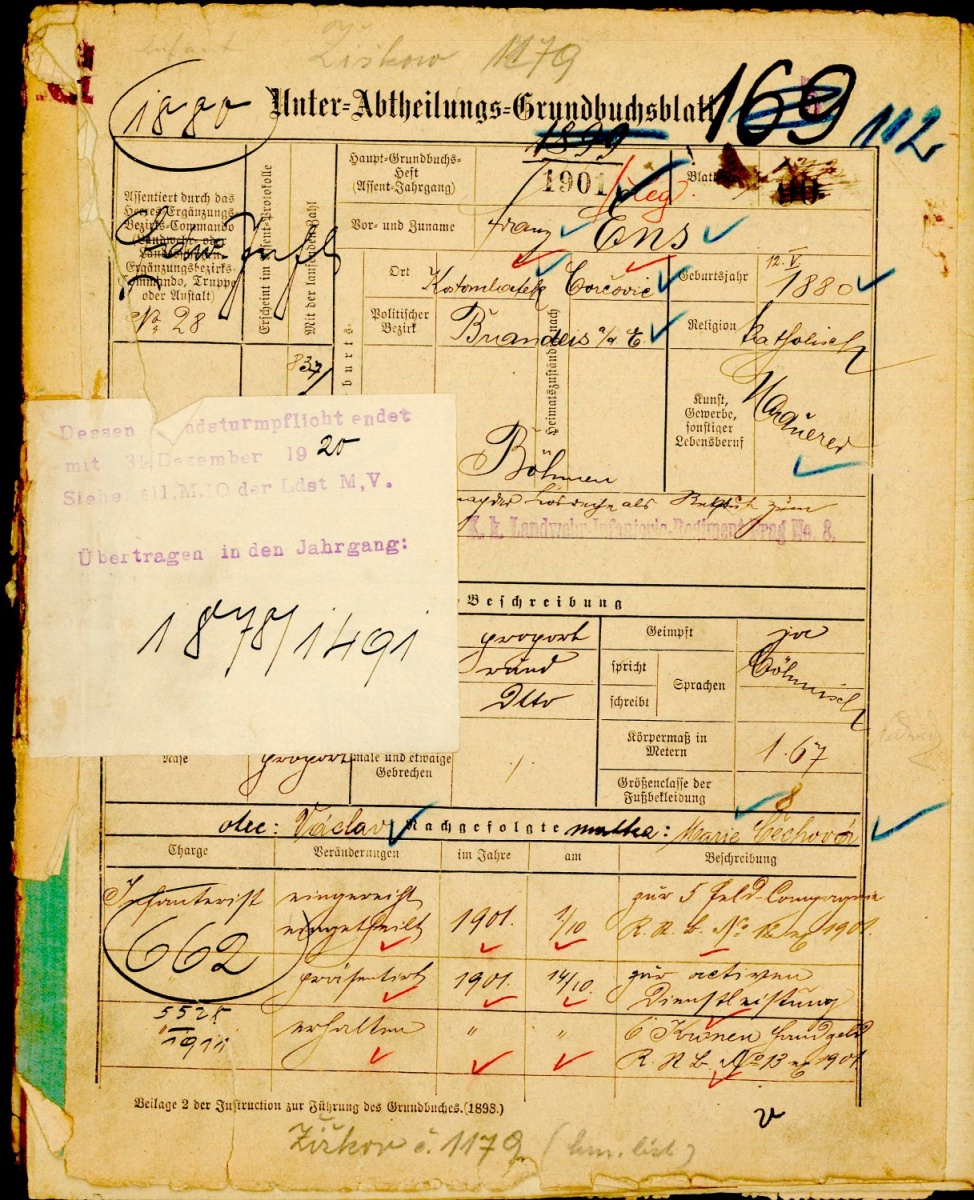 Žižkow 1179
1880
Unter-Abtheilungs-Grundbuchsblatt 169 112
1899
Assentiert durch das
Heeres-Ergänzungs-
Bezirks-Commando
(Landwehr- oder
Ergänzungsbezirks-
Commando, Truppe
oder Anstalt)
No 28
Erscheint im Assent-Protokolle
Mit der laufenden Zahl
837
Haupt-Grundbuchs-
Heft
(Assent-Jahrgang)
1901
Blatt
90
Vor- und Zuname
Franz Ens
Ort
Geburtsjahr
12. V.
1880
Politischer
Bezirk
Brandeis a/d E.
Heimatszuständig nach
Religion
katholisch
Böhmen
Kunst,
Gewerbe,
sonstiger
Lebensberuf
Maurer
als Rekrut zum
K. k. Landwehr Infanterie-Regiment Prag No. 8.
Dessen ndsturmpflicht endet
mit 31. Dezember 1920
Siehe 11.M.10 der Ldst M,V.
Übertragen in den Jahrgang:
1878/1491
Beschreibung
proport
rund
Dtto
Geimpft
ja
spricht
schreibt
Sprachen
Böhmisch
Nase
proport
male und etwaige
Gebrechen
Körpermaß in
Metern
1.67
Größenclasse der
Fußbekleidung
8
otec: Václav Nachgefolgte matka: Marie Čechová
Charge
Veränderungen
im Jahre
am
Beschreibung
Infanterist
eingereiht
eingetheilt
1901.
1/10
zur 5 Feld-Compagnie
R. A. B. No 12 ex 1901.
662
präsentirt
1901.
14/10.
zur activen
Dienstleistung
5528
1911
erhalten
"
"
6 Kronen Handgeld
R. A. B. No 13 ex 1901
Beilage 2 der Instruction zur Führung des Grundbuches.(1898.)
Žižkov č. 1179